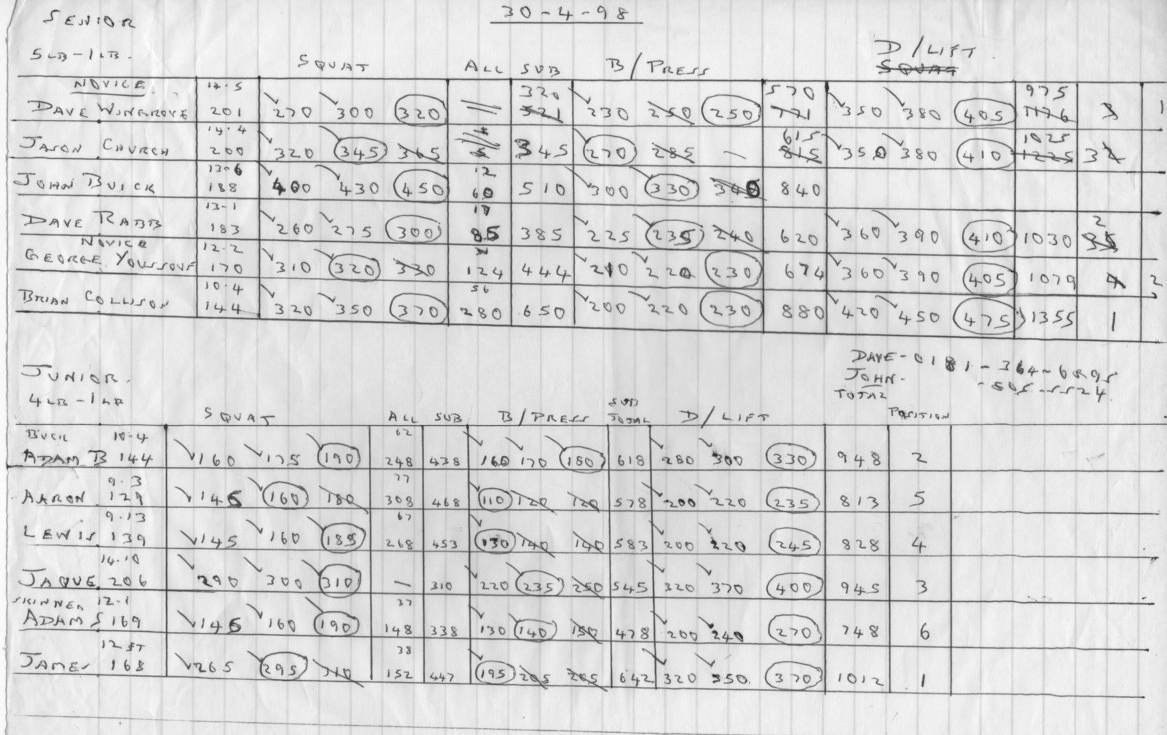 30-4-98
SENIOR
5LB-1LB.
SQUAT ALL SUB B/PRESS D/LIFT
SQUAT
NOVICE 14.5 320 570 975
DAVE WINGROVE 201 270 300 320 — 321 230 250 250 771 350 380 405 1176 3 1
14.4 615 1025
JASON CHURCH 200 320 345 365 345 270 285 — 815 350 380 410 1225 3
13.6 12
JOHN BUICK 188 400 430 450 60 510 300 330 340 840
13-1 17 2
DAVE RABB 183 260 275 300 85 385 225 235 240 620 360 390 410 1030
NOVICE 12-2
GEORGE YOUSSOUF 170 310 320 330 124 444 210 220 230 674 360 390 405 1079 4 2
10.4 56
BRIAN COLLISON 144 320 350 370 280 650 200 220 230 880 420 450 475 1355 1
DAVE-0181-364-6895
JOHN. -505-5524
JUNIOR.
4LB-1LB
SQUAT ALL SUB B/PRESS SUB TOTAL D/LIFT TOTAL POSITION
BUCK 10-4 62
ADAM B 144 160 175 190 248 438 160 170 180 618 280 300 330 948 2
9.3 77
AARON 129 145 160 180 308 468 110 120 120 578 200 220 235 813 5
9.13 67
LEWIS 139 145 160 185 268 453 130 140 140 583 200 220 245 828 4
14.10
JAQUE 206 290 300 310 — 310 220 235 250 545 320 370 400 945 3
SKINNER 12-1 37
ADAM S 169 145 160 190 148 338 130 140 150 478 200 240 270 748 6
12 ST 38
JAMES 168 265 295 310 152 447 195 205 205 642 320 350 370 1012 1